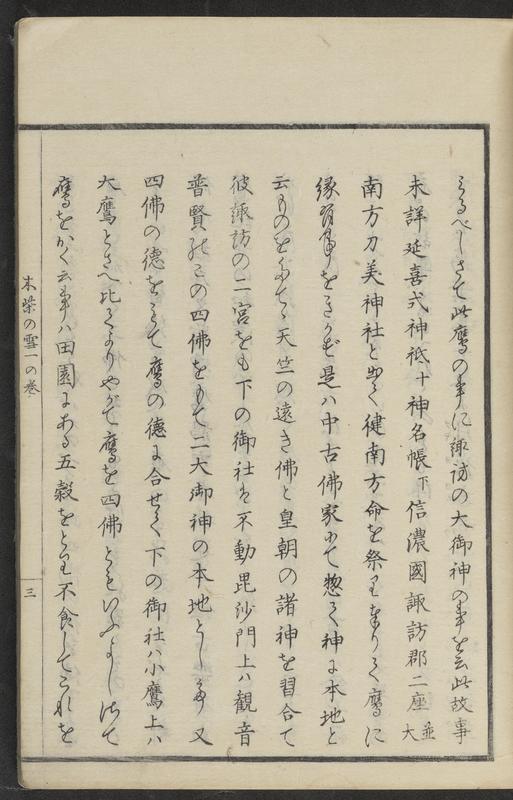 うるべしさて此鷹の事に諏訪の大御神の事を云此故事
未詳延喜式神祇十神名帳下信濃國諏訪郡二座並大
南方刀美神社と出て健南方命を祭りまゐりて鷹に
縁有事をきかず是ハ中古佛家にて惣て神に本地と
云ものをたてゝ天竺の遠き佛と皇朝の諸神を習合て
彼諏訪の二宮をも下の御社を不動毘沙門上ハ観音
普賢の四佛をもて二大御神の本地とし又
四佛の徳をもて鷹の徳に合せて下の御社ハ小鷹上ハ
大鷹とさへ比てよりやがて鷹を四佛ともいふよしにて
鷹をかく云事ハ田園にある五穀をとりて不食してこれを
木柴の雪一の巻
三